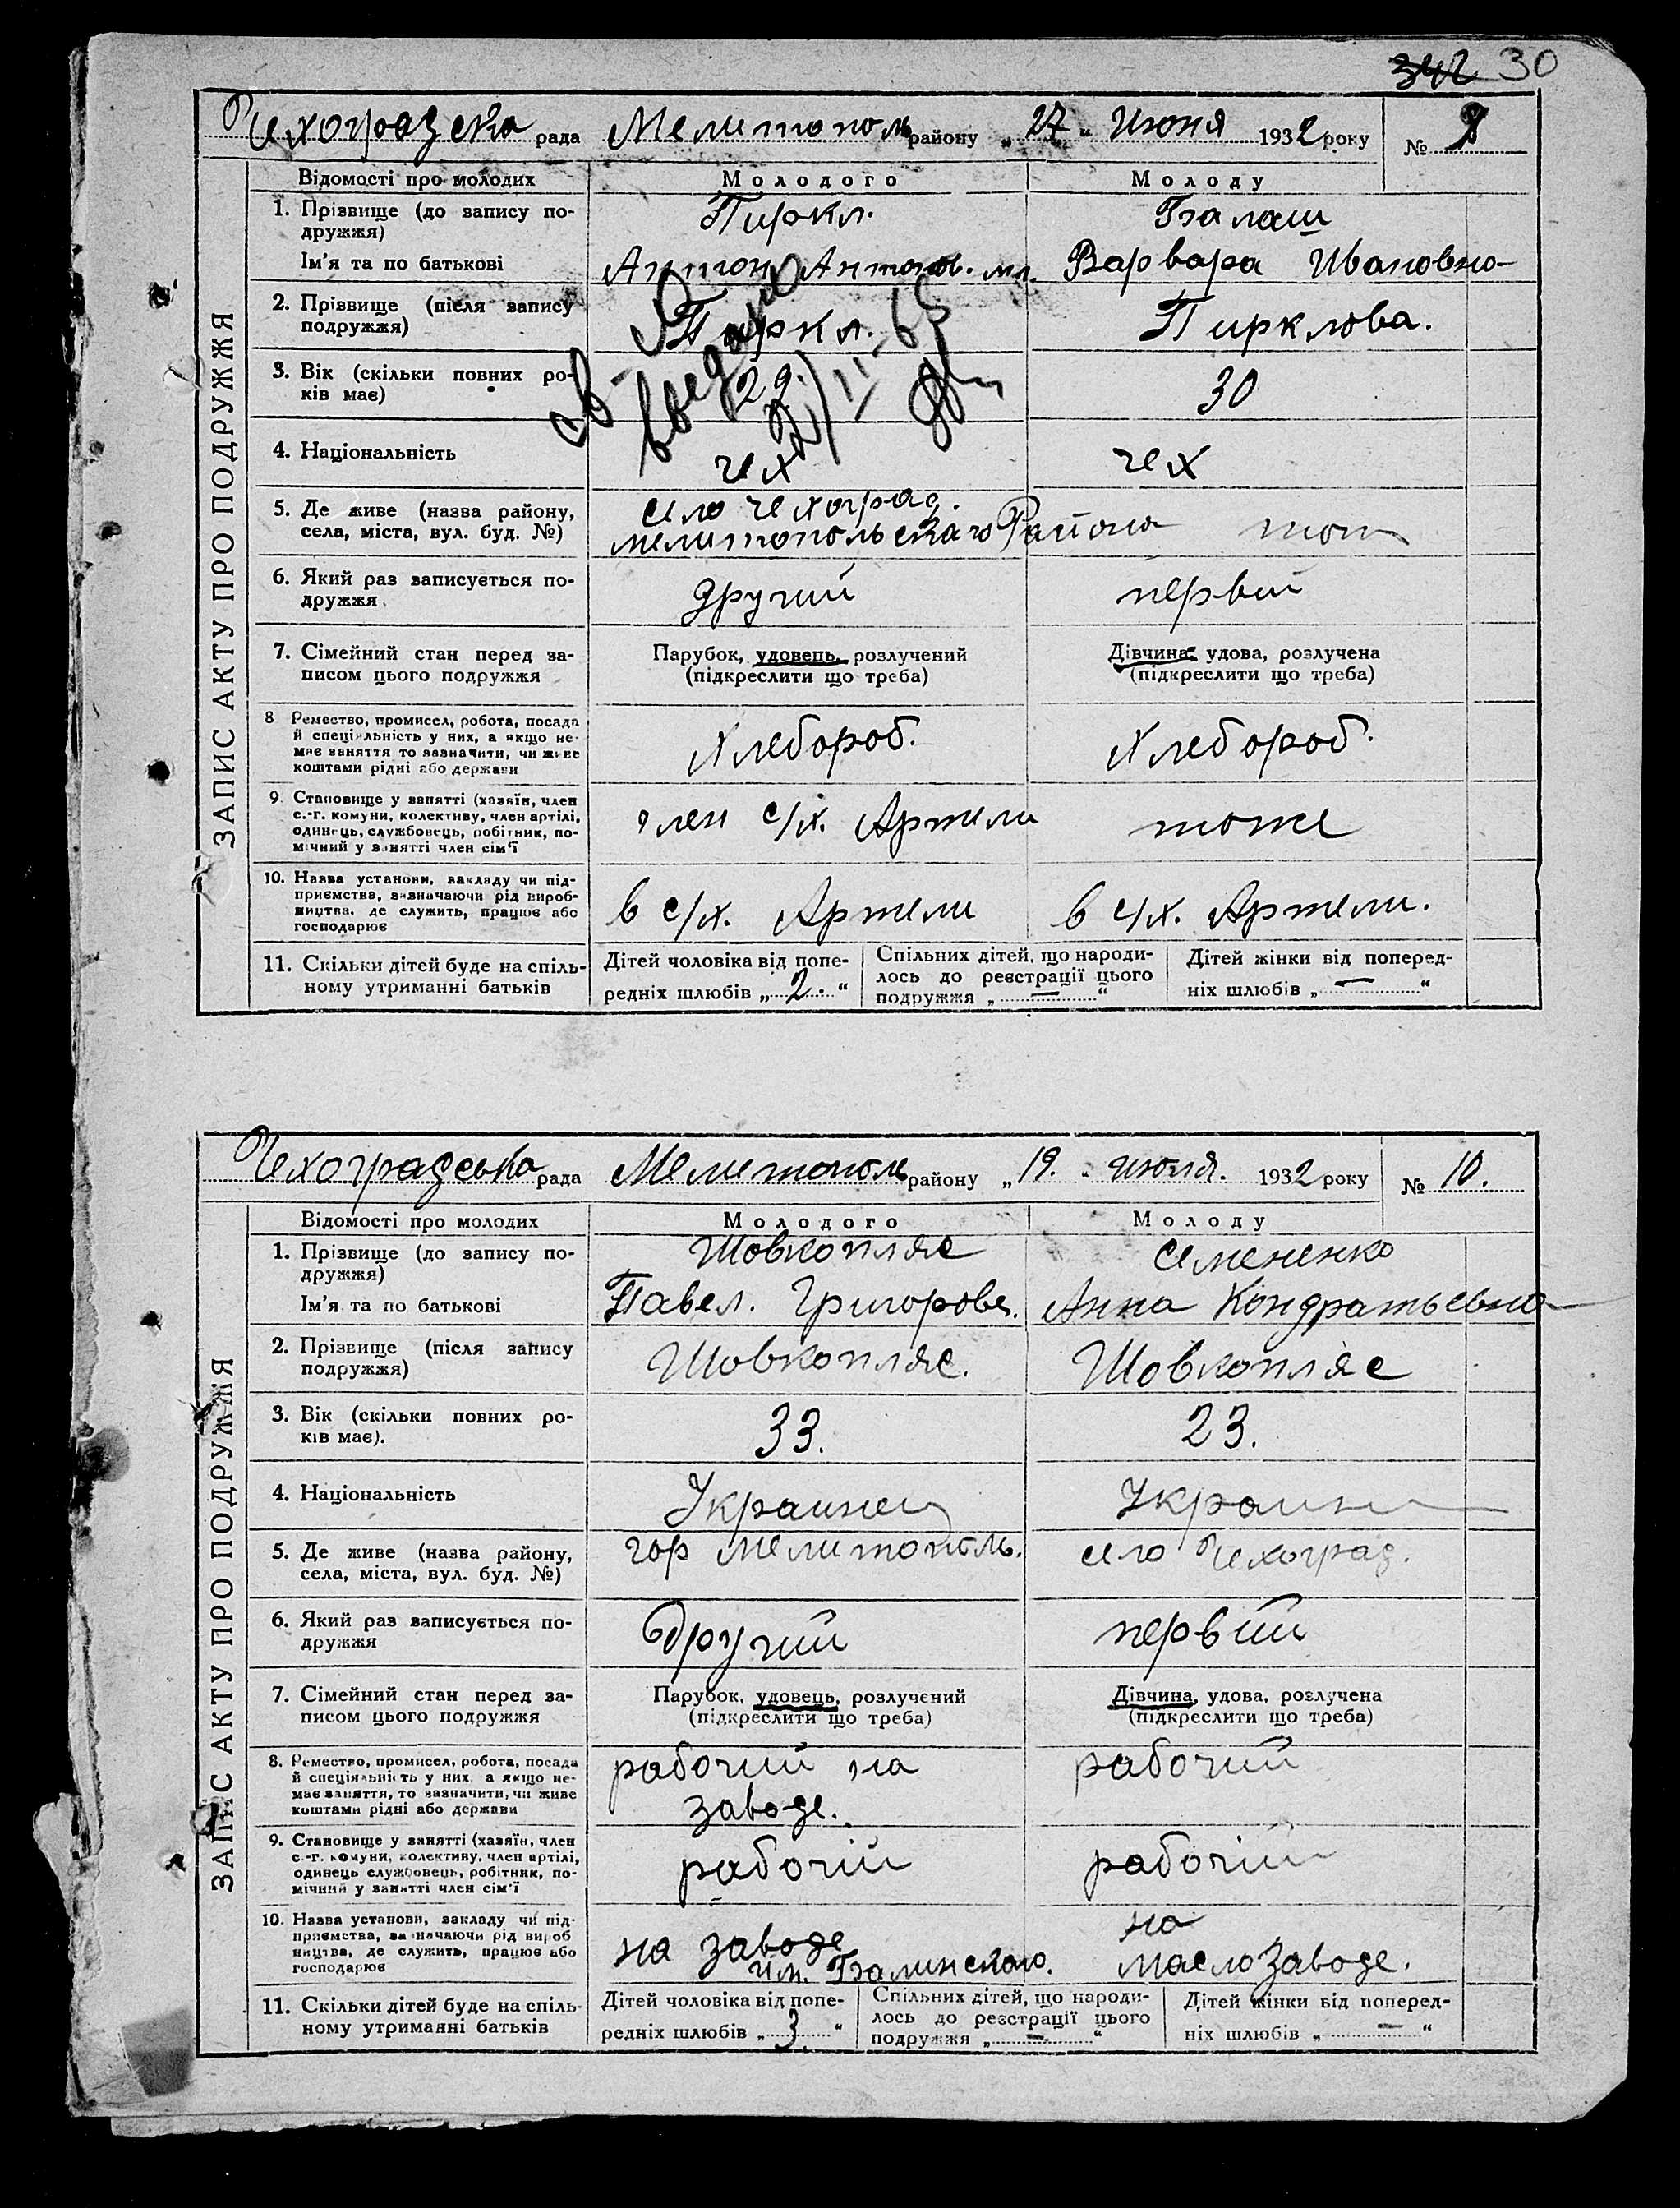 342 30
Чехоградска рада Мелитополь району „ 27 „ Июня 1932 року №
ЗАПИС АКТУ ПРО ПОДРУЖЖЯ
Відомості про молодих Молодого Молоду
1. Прізвище (до запису по-
дружжя)
Пиркл. Балаш
Ім'я та по батькові Антон Антонов. мл. Варвара Ивановна
2. Прізвище (після запису
подружжя)
Пиркл. Пирклова.
3. Вік (скільки повних ро-
ків має)
29. 30
4. Національність чех чех
5. Де живе (назва району,
села, міста, вул. буд. №)
село чехоград.
мелитопольскаго Района тот
6. Який раз записується по-
дружжя
другий первий
7. Сімейний стан перед за-
писом цього подружжя
Парубок, удовець, розлучений
(підкреслити що треба)
Дівчина, удова, розлучена
(підкреслити що треба)
8 Ремество, промисел, робота, посада
й спеціяльність у них, а якщо не-
має заняття то зазначити, чи живе
коштами рідні або держави
Хлебороб. Хлебороб.
9. Становище у занятті (хазяїн, член
с.-г. комуни, колективу, член артілі,
одинець, службовець, робітник, по-
мічний у занятті член сім'ї
член с/х. Артели тоже
10. Назва установи, закладу чи під-
приємства, визначаючи рід вироб-
ництва, де служить, працює або
господарює
в с/х. Артели в с/х. Артели.
11. Скільки дітей буде на спіль-
ному утриманні батьків
Дітей чоловіка від попе-
редніх шлюбів „ 2. “
Спільних дітей, що народи-
лось до реєстрації цього
подружжя „ — “
Дітей жінки від поперед-
ніх шлюбів „ — “
Чехоградська рада Мелитополь району „ 19. „ июля. 1932 року № 10.
ЗАПИС АКТУ ПРО ПОДРУЖЖЯ
Відомості про молодих Молодого Молоду
1. Прізвище (до запису по-
дружжя)
Шовкопляс Семененко
Ім'я та по батькові Павел. Григоровч. Анна Кондратьевна
2. Прізвище (після запису
подружжя)
Шовкопляс. Шовкопляс
3. Вік (скільки повних ро-
ків має).
33. 23.
4. Національність Украинец Украин
5. Де живе (назва району,
села, міста, вул. буд. №)
гор мелитополь. село Чехоград.
6. Який раз записується по-
дружжя
Другий первий
7. Сімейний стан перед за-
писом цього подружжя
Парубок, удовець, розлучений
(підкреслити що треба)
Дівчина, удова, розлучена
(підкреслити що треба)
8. Ремество, промисел, робота, посада
й спеціяльність у них, а якщо не-
має заняття, то зазначити, чи живе
коштами рідні або держави
рабочий на
заводе.
рабочий
9. Становище у занятті (хазяїн, член
с.-г. комуни, колективу, член артілі,
одинець службовець, робітник, по-
мічний у занятті член сім'ї
рабочій рабочій
10. Назва установи, закладу чи під-
приємства, зазначаючи рід вироб
ництва, де служить, працює або
господарює
на заводе
им. Балинскаго.
на
маслозаводе.
11. Скільки дітей буде на спіль-
ному утриманні батьків
Дітей чоловіка від попе-
редніх шлюбів „ 3. “
Спільних дітей, що народи-
лось до реєстрації цього
подружжя „ — “
Дітей жінки від поперед-
ніх шлюбів „ — “